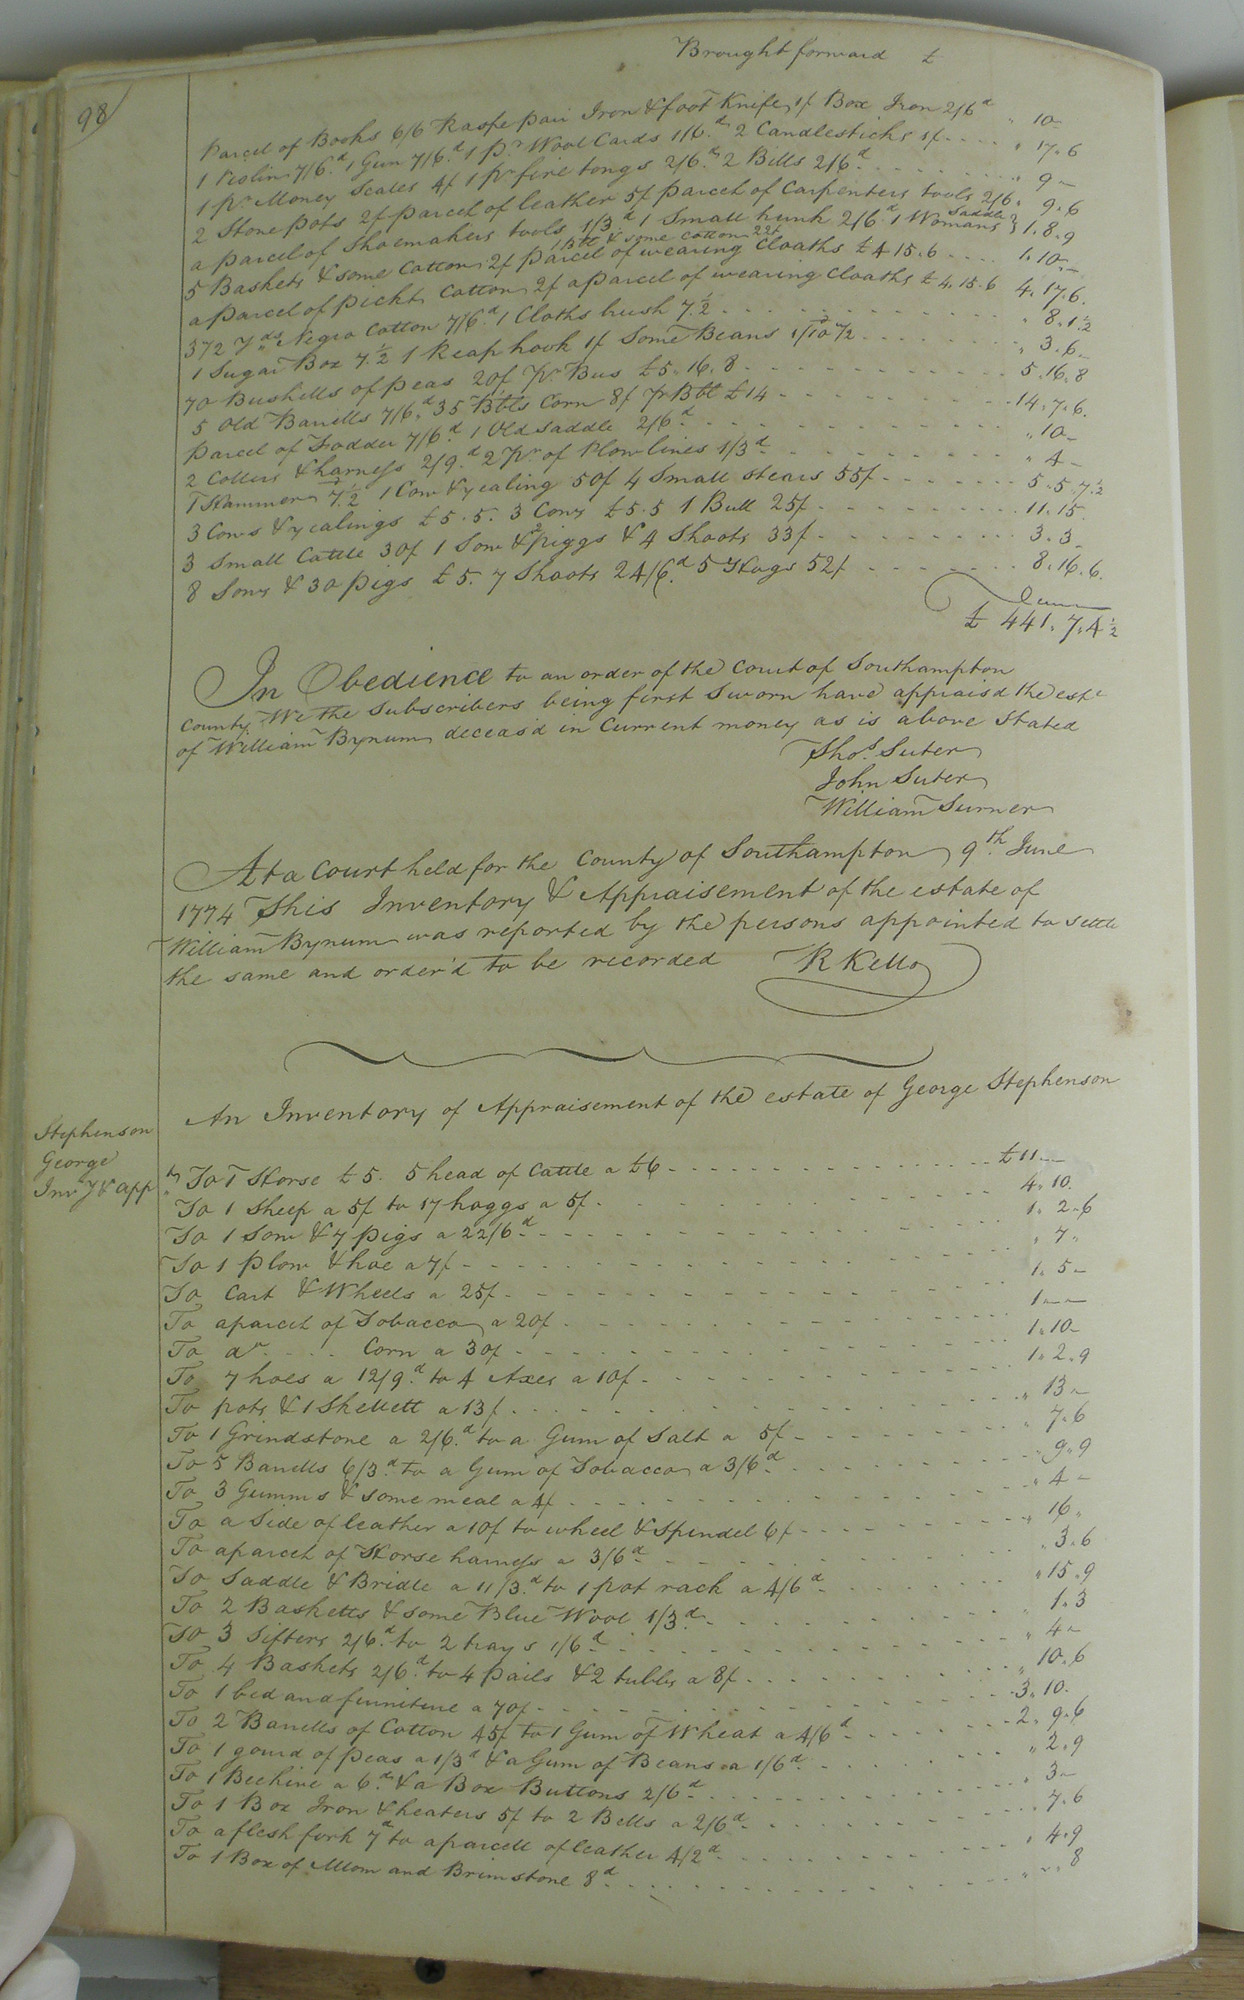 98
Brought forward £
Parcel of Books 6/6 Raspe pair Iron & foot Knife 1/ Box Iron 2/6d " 10 -
1 Violin 7/6d 1 Gun 7/6d 1 pr Wool Cards 1/6d 2 Candlesticks 1/ " 17. 6
1 pr Money Scales 4/ 1 pr fire tongs 2/6d 2 Bills 2/6d " 9 -
2 Stone pots 2/ parcel of leather 5/ parcel of Carpenters tools 2/6 " 9. 6
a parcel of Shoemakers tools 1/3d 1 Small trunk 2/6d 1 Womans Saddle } 1. 8. 9
1 Bll & some Cotton 22/
5 Baskets & some Cotton 2/ parcel of wearing Cloaths £4. 15. 6 1. 10 -
a parcel of Pickt Cotton 2/ a parcel of wearing Cloaths £4. 15. 6 4. 17. 6.
3 1/2 Yds Negro Cotton 7/6d 1 Cloths brush 7 1/2 " 8. 1 1/2
1 Sugar Box 7 1/2 1 Reap hook 1/ Some Beans 1/10 1/2 " 3. 6 -
70 Bushells of peas 20/ pr Bus £5. 16. 8 5. 16. 8
5 Old Barrells 7/6d 35 Bbls Corn 8/ pr Bbl £14 14. 7. 6.
Parcel of Fodder 7/6d 1 Old saddle 2/6d " 10 -
2 Collers & harness 2/9d 2 pr of Plow lines 1/3d " 4 -
1 Hammer 7 1/2 1 Cow & yealing 50/ 4 Small stears 55/ 5. 5. 7 1/2
3 Cows & yealings £5. 5. 3 Cows £5. 5 1 Bull 25/ 11. 15.
3 Small Cattle 30/ 1 Sow & 2 piggs & 4 Shoats 33/ 3. 3 -
8 Sows & 30 pigs £5. 7 Shoats 24/6d 5 Hogs 52/ 8. 16. 6.
£ 441. 7. 4 1/2
In Obedience to an order of the Court of Southampton
County We the Subscribers being first Sworn have appraisd the este
of William Bynum deceas'd in Current money as is above Stated
Thos. Suter
John Suter
William Turner
At a Court held for the County of Southampton 9th June
1774 This Inventory & Appraisement of the estate of
William Bynum was reported by the persons appointed to settle
the same and order'd to be recorded R Kello
An Inventory of Appraisement of the estate of George Stephenson
Stephenson
George
Invy & app
To 1 Horse £5. 5 head of Cattle a £6 £11 -
To 1 Sheep a 5/ to 17 hoggs a 5/ 4. 10.
To 1 Sow & 7 pigs a 22/6d 1. 2. 6
To 1 plow & hoe a 7/ " 7 "
To Cart & Wheels a 25/ 1. 5 -
To a parcel of Tobacco a 20/ 1 - -
To do Corn a 30/ 1. 10 -
To 7 hoes a 12/9d to 4 Axes a 10/ 1. 2. 9
To pots & 1 Skellett a 13/ " 13 -
To 1 Grindstone a 2/6d to a Gum of Salt a 5/ " 7. 6
To 5 Barrells 6/3d to a Gum of Tobacco a 3/6d " 9. 9
To 3 Gumms & some meal a 4/ " 4 -
To a Side of leather a 10/ to wheel & Spindel 6/ " 16 "
To a parcel of Horse harness a 3/6d " 3. 6
To Saddle & Bridle a 11/3d to 1 pot rack a 4/6d " 15. 9
To 2 Basketts & some Blue Wool 1/3d 1. 3
To 3 Sifters 2/6d to 2 trays 1/6d " 4 -
To 4 Baskets 2/6d to 4 pails & 2 tubbs a 8/ " 10. 6
To 1 bed and furniture a 70/ 3. 10.
To 2 Barrells of Cotton 45/ to 1 Gum of Wheat a 4/6d 2. 9. 6
To 1 gourd of peas a 1/3d & a Gum of Beans a 1/6d " 2. 9
To 1 Beehive a 6d & a Box Buttons 2/6d " 3 -
To 1 Box Iron & heaters 5/ to 2 Bells a 2/6d " 7. 6
To a flesh fork 7d to a parcell of leather 4/2d " 4. 9
To 1 Box of Allom and Brimstone 8d " " 8